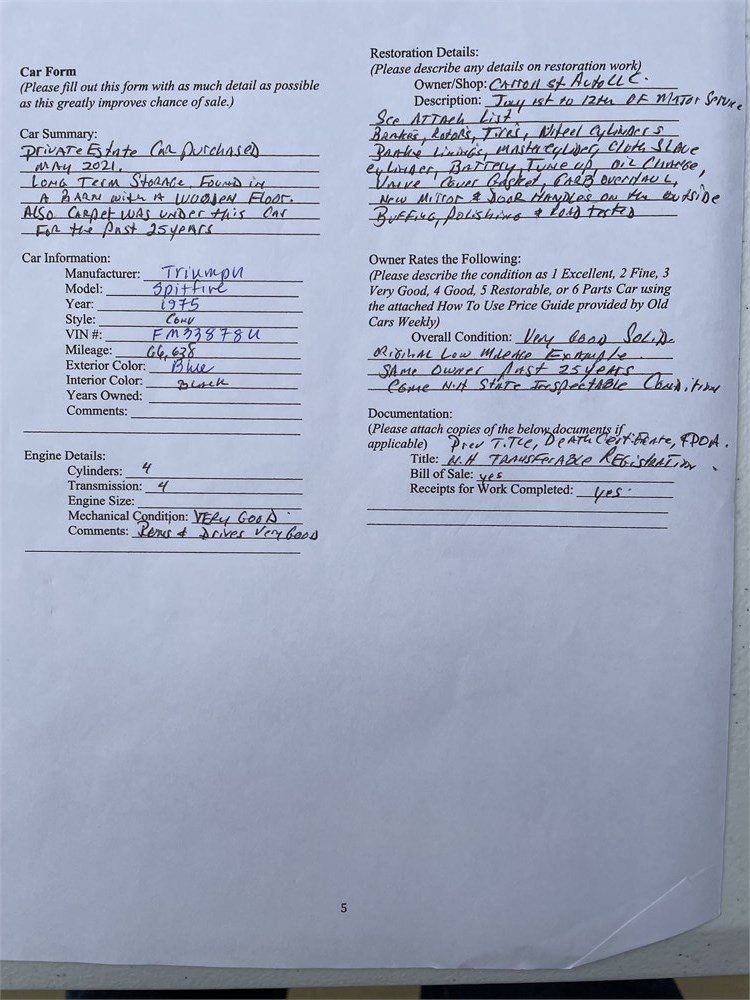 Car Form
(Please fill out this form with as much detail as possible
as this greatly improves chance of sale.)
Car Summary:
Private Estate Car Purchased
MAY 2021.
Long Term Storage, Found in
A BARN with A WOODEN FLOOR.
Also Carpet WAS under this Car
For the Past 25 years
Car Information:
Manufacturer: Triumph
Model: Spitfire
Year: 1975
Style: Conv
VIN #: FM33878U
Mileage: 66,638
Exterior Color: Blue
Interior Color: Black
Years Owned:
Comments:
Engine Details:
Cylinders: 4
Transmission: 4
Engine Size:
Mechanical Condition: VERY GOOD
Comments: Runs & Drives Very Good
Restoration Details:
(Please describe any details on restoration work)
Owner/Shop: Carroll St Auto LLC.
Description: July 1st to 12th OF MAJOR Service
See ATTACH List.
Brakes, Rotors, Tires, Wheel Cylinders
Brake Linings, Master Cylinder, Cluth Slave
Cylinder, Battery, Tune up, Oil Change,
Valve Cover Gasket, CARB OVERHAUL,
New Mirror & Door Handles on the outside
Buffing, Polishing & Road Tested
Owner Rates the Following:
(Please describe the condition as 1 Excellent, 2 Fine, 3
Very Good, 4 Good, 5 Restorable, or 6 Parts Car using
the attached How To Use Price Guide provided by Old
Cars Weekly)
Overall Condition: Very Good Solid
Original Low Mileage Example.
SAME Owner Past 25 years
N.H State Inspectable Condition
Documentation:
(Please attach copies of the below documents if
applicable) Prev Title, Death Certificate, POA.
Title: N.H TRANSFERABLE REGistration.
Bill of Sale: yes
Receipts for Work Completed: yes.
5